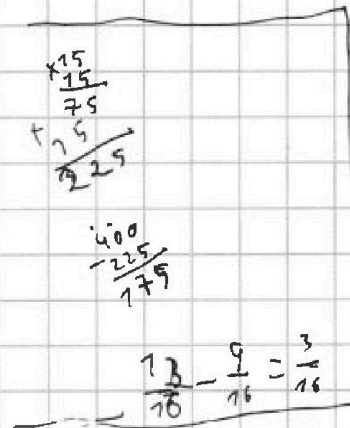 ×15
15
75
+15
225
400
-225
175
/16 - 9/16 = 3/16